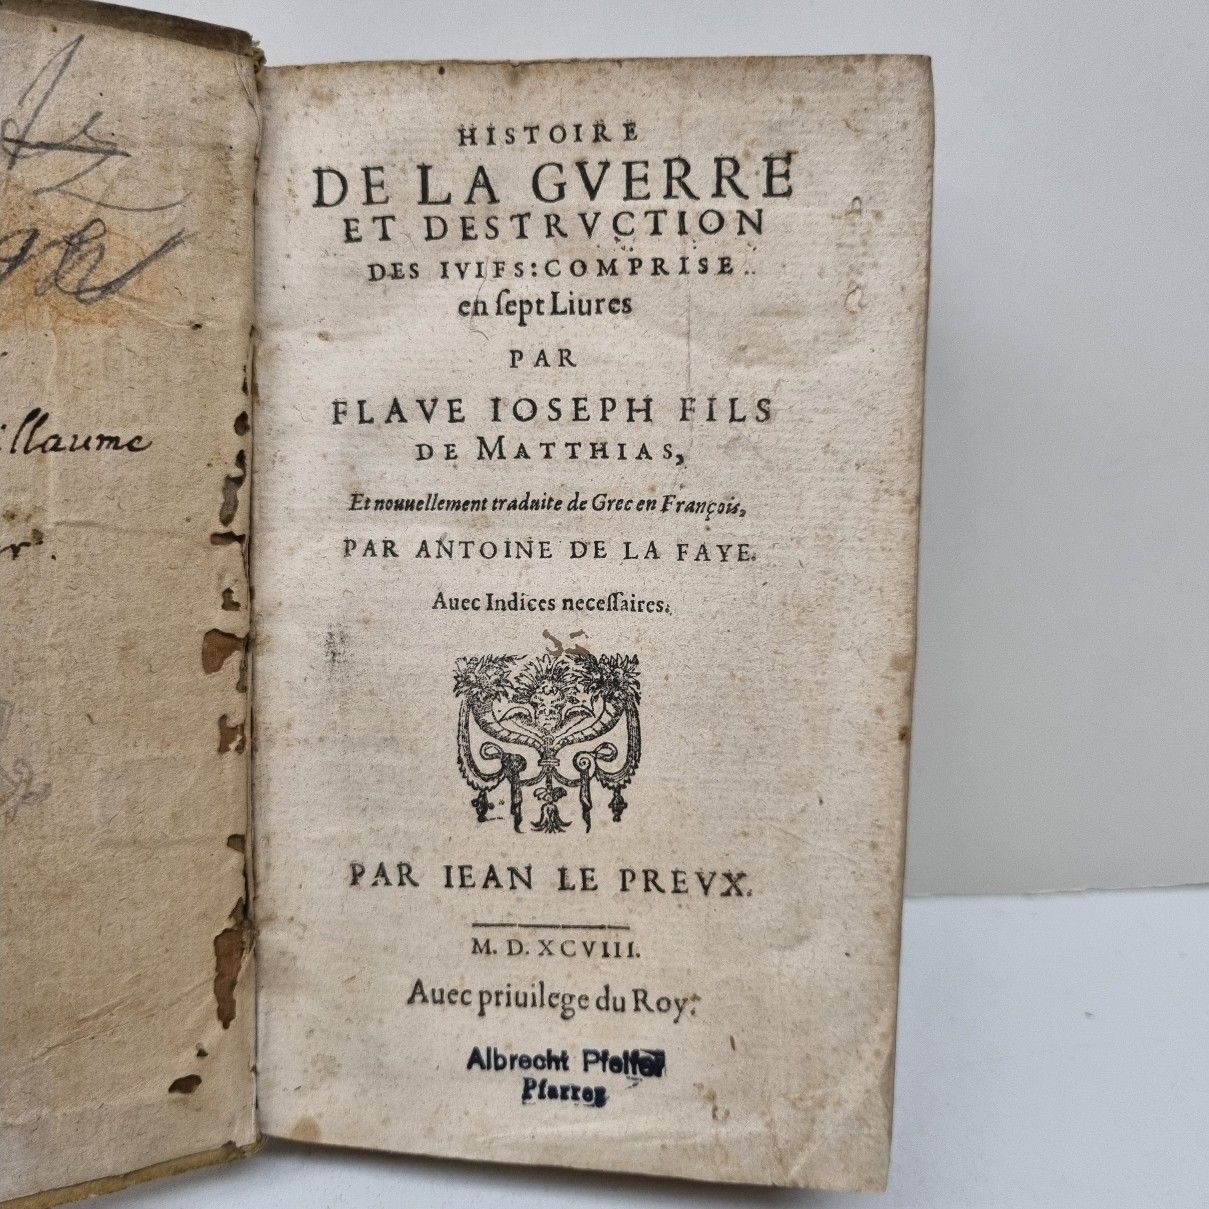 illaume
HISTOIRE
DE LA GVERRE
ET DESTRVCTION
DES IVIFS: COMPRISE
en ſept Liures
PAR
FLAVE IOSEPH FILS
DE MATTHIAS,
Et nouuellement traduite de Grec en François,
PAR ANTOINE DE LA FAYE.
Auec Indices neceſſaires.
PAR IEAN LE PREVX.
M. D. XCVIII.
Auec priuilege du Roy.
Albrecht Pfeiffer
Pfarrer